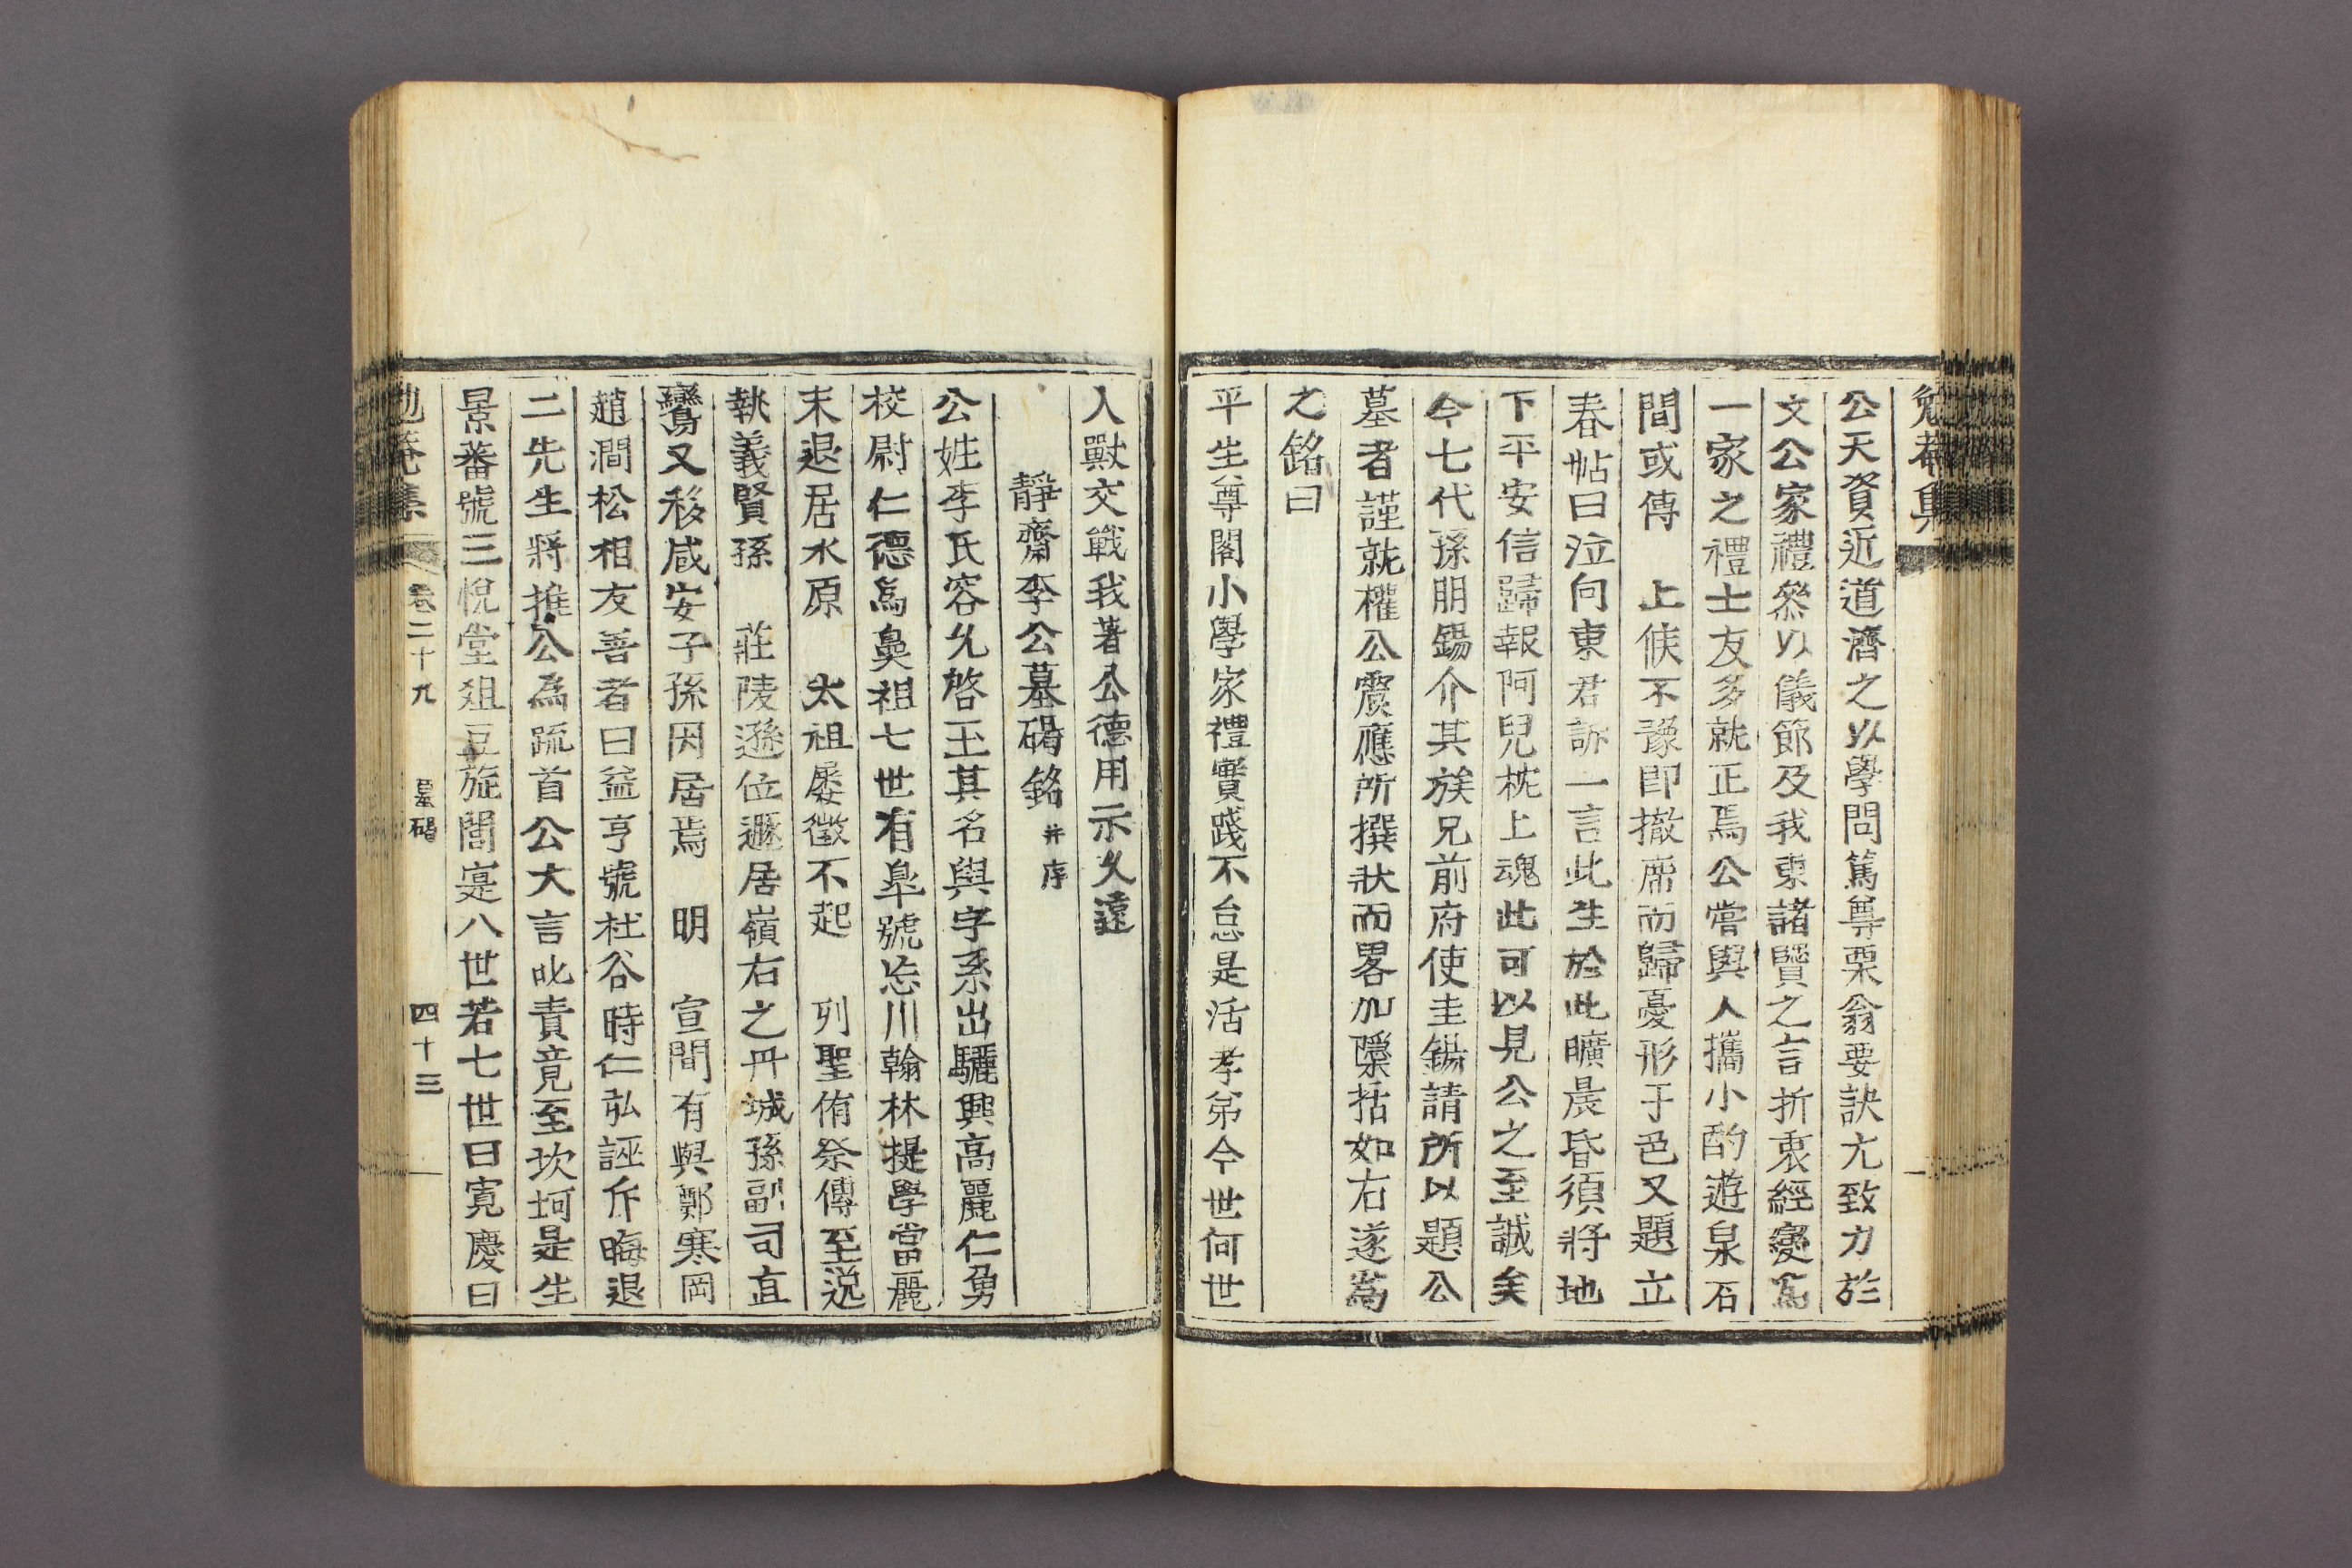 勉菴集
公天資近道濟之以學問篤尊栗翁要訣尤致力於
文公家禮叅以儀節及我東諸賢之言折衷經變爲
一家之禮士友多就正焉公嘗與人攜小酌遊泉石
間或傳 上候不豫卽撤席而歸憂形于色又題立
春帖曰泣向東君訴一言此生於此曠晨昏須將地
下平安信歸報阿兒枕上魂此可以見公之至誠矣
今七代孫朋錫介其族兄前府使圭錫請所以題公
墓者謹就權公震應所撰狀而畧加檃括如右遂爲
之銘曰
平生尊閣小學家禮實踐不怠是活孝弟今世何世
人獸交戰我著公德用示久遠
靜齋李公墓碣銘 并序
公姓李氏容允啓玉其名與字系出驪興高麗仁勇
校尉仁德爲鼻祖七世有皐號忘川翰林提學當麗
末退居水原 太祖屡徵不起 列聖侑祭傳至説
執義賢孫 莊陵遜位遯居嶺右之丹城孫副司直
鸞又移咸安子孫因居焉 明 宣間有與鄭寒岡
趙澗松相友善者曰益亨號杜谷時仁弘誣斥晦退
二先生將推公爲疏首公大言叱責竟至坎坷是生
景蕃號三悅堂俎豆旋閭寔八世若七世曰寬慶曰
勉菴集 卷二十九 墓碣 四十三